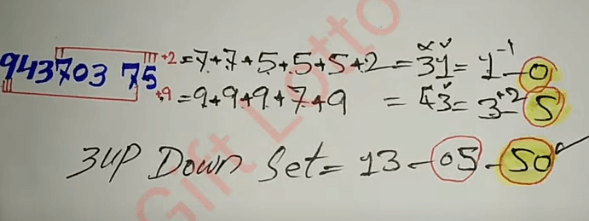 943703 75
+2 = 7+7+5+5+5+2 = 31 = 1⁻¹ - 0
+9 = 9+9+9+7+9 = 43 = 3⁺² - 5
3UP Down Set = 13 - 05 - 50
Gift Lotto